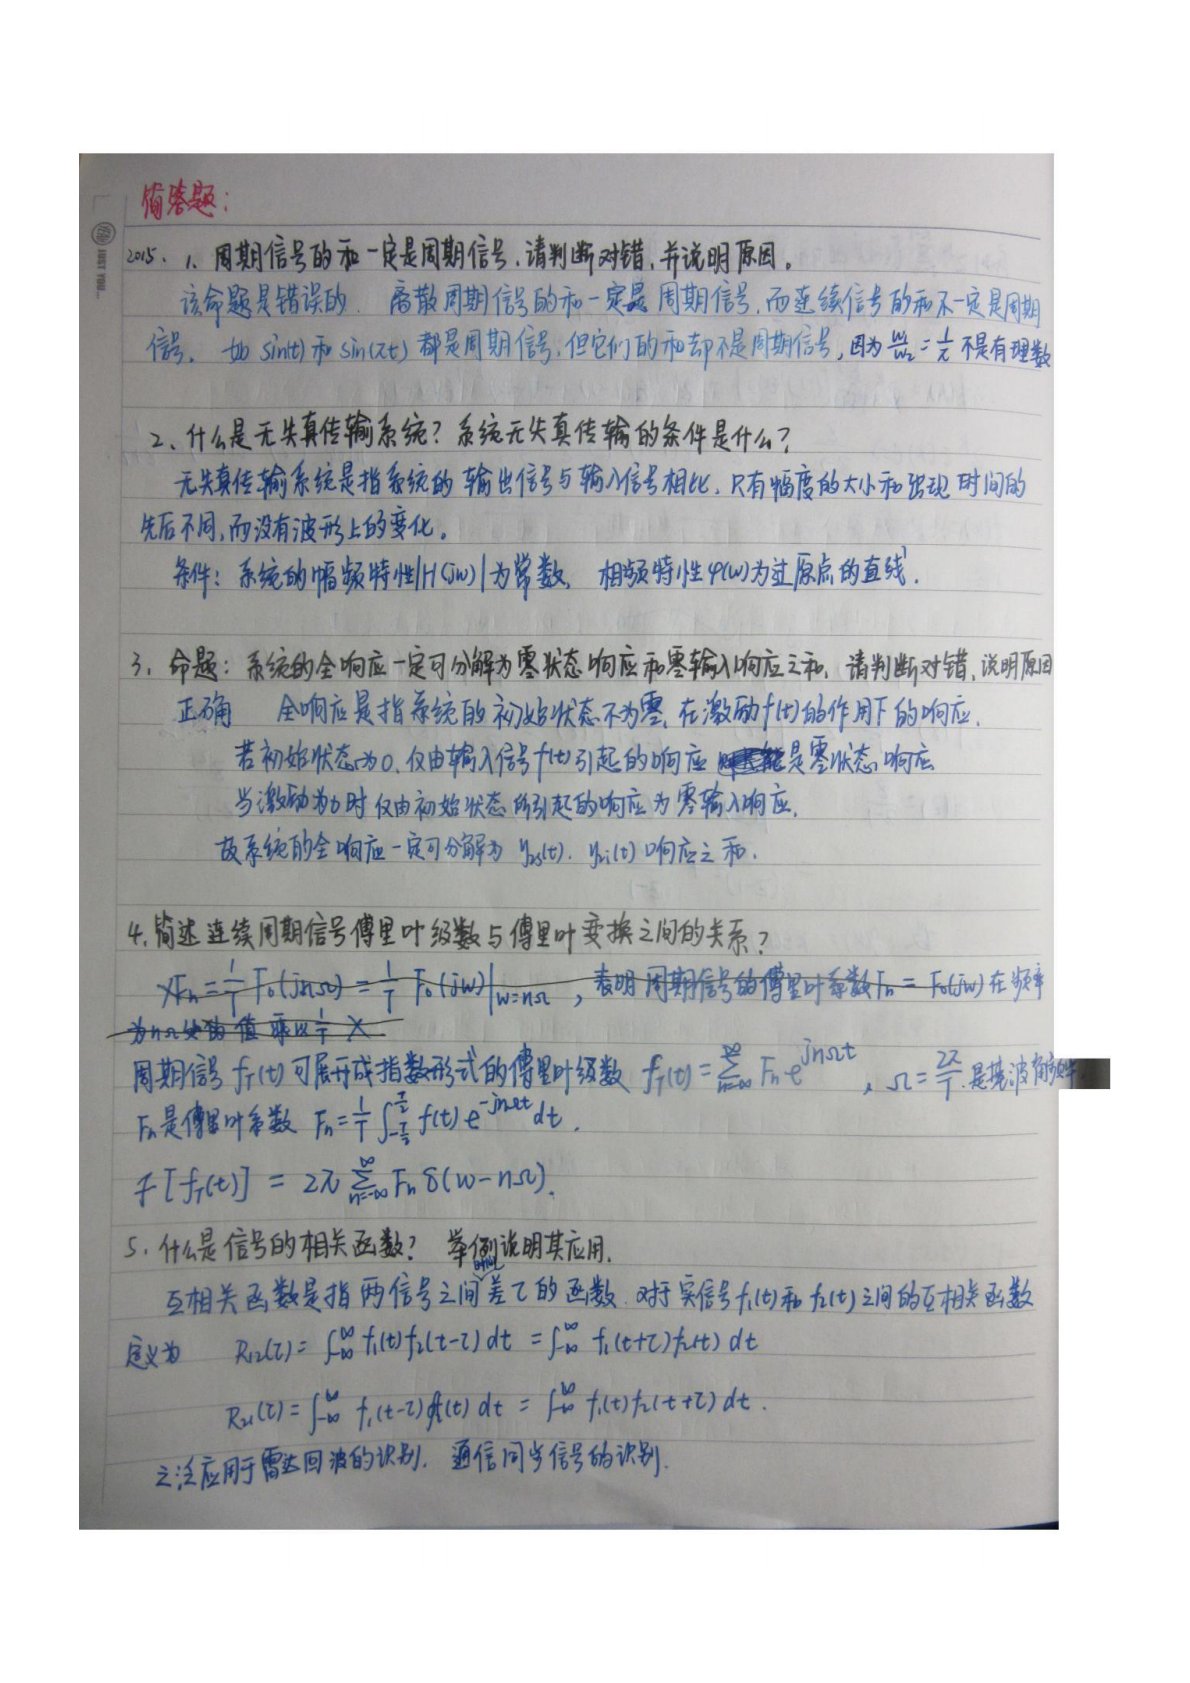 简答题：
2015. 1、周期信号的和一定是周期信号，请判断对错，并说明原因。
该命题是错误的．离散周期信号的和一定是周期信号，而连续信号的和不一定是周期
信号，如 sin(t) 和 sin(πt) 都是周期信号，但它们的和却不是周期信号，因为 ω₁/ω₂ = 1/π 不是有理数
2、什么是无失真传输系统？系统无失真传输的条件是什么？
无失真传输系统是指系统的输出信号与输入信号相比，只有幅度的大小和出现时间的
先后不同，而没有波形上的变化。
条件：系统的幅频特性|H(jω)|为常数，相频特性φ(ω)为过原点的直线．
3. 命题：系统的全响应一定可分解为零状态响应和零输入响应之和，请判断对错，说明原因
正确 全响应是指系统的初始状态不为零，在激励f(t)的作用下的响应．
若初始状态为0，仅由输入信号f(t)引起的响应是零状态响应
当激励为0时仅由初始状态所引起的响应为零输入响应．
故系统的全响应一定可分解为 yzs(t)．yzi(t)响应之和．
4. 简述连续周期信号傅里叶级数与傅里叶变换之间的关系？
Fn = 1/T F₀(jnΩ) = 1/T F₀(jω)|ω=nΩ ，表明周期信号的傅里叶系数Fn = F₀(jω)在频率
为nΩ处的值乘以 1/T
周期信号 f_T(t) 可展开成指数形式的傅里叶级数 f_T(t) = ∑_{n=-∞}^{∞} Fn e^{jnΩt}，Ω = 2π/T 是基波角频率
Fn是傅里叶系数 Fn = 1/T ∫_{-T/2}^{T/2} f(t) e^{-jnΩt} dt．
F[f_T(t)] = 2π ∑_{n=-∞}^{∞} Fn δ(ω-nΩ)．
5. 什么是信号的相关函数？ 举例说明其应用．
互相关函数是指两信号之间时间差τ的函数．对于实信号f₁(t)和f₂(t)之间的互相关函数
定义为 R₁₂(τ) = ∫_{-∞}^{∞} f₁(t)f₂(t-τ)dt = ∫_{-∞}^{∞} f₁(t+τ)f₂(t)dt
R₂₁(τ) = ∫_{-∞}^{∞} f₁(t-τ)f₂(t)dt = ∫_{-∞}^{∞} f₁(t)f₂(t+τ)dt．
之泛应用于雷达回波的识别，通信同步信号的识别．